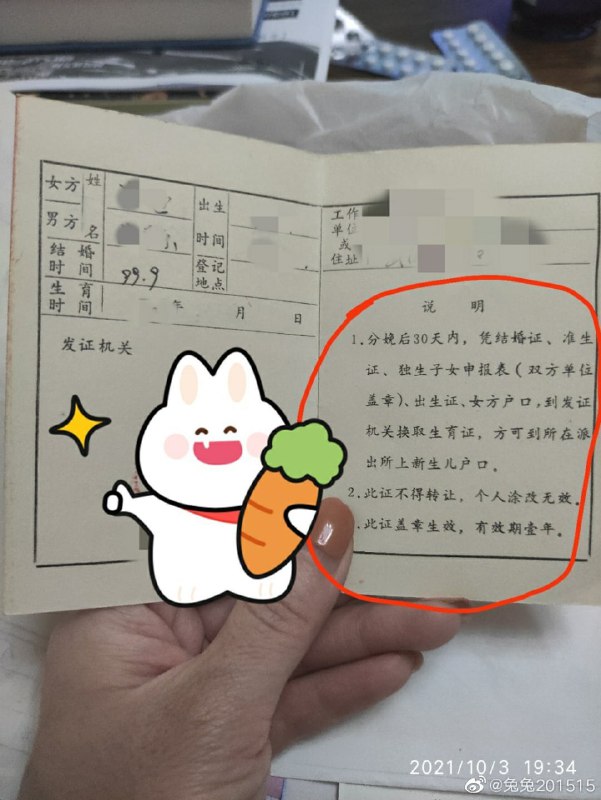 女方 姓 出生
男方 名 时间
结婚时间 89.9 登记地点
生育时间 年 月 日
发证机关
工作
单位
或
住址
说 明
1.分娩后30天内，凭结婚证、准生
证、独生子女申报表（双方单位
盖章）、出生证、女方户口，到发证
机关换取生育证，方可到所在派
出所上新生儿户口。
2.此证不得转让，个人涂改无效。
.此证盖章生效，有效期壹年。
2021/10/3 19:34
@兔兔201515